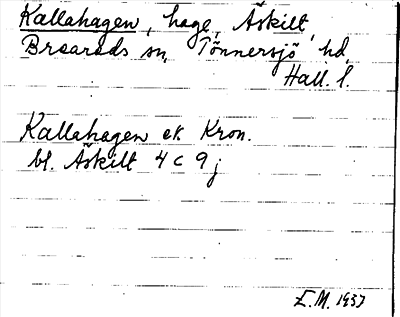 Kallahagen, hage, Åskilt,
Breareds sn, Tönnersjö hd,
Hall. l.
Kallahagen ek Kron.
bl. Åskilt 4 c 9 j
E.M. 1937